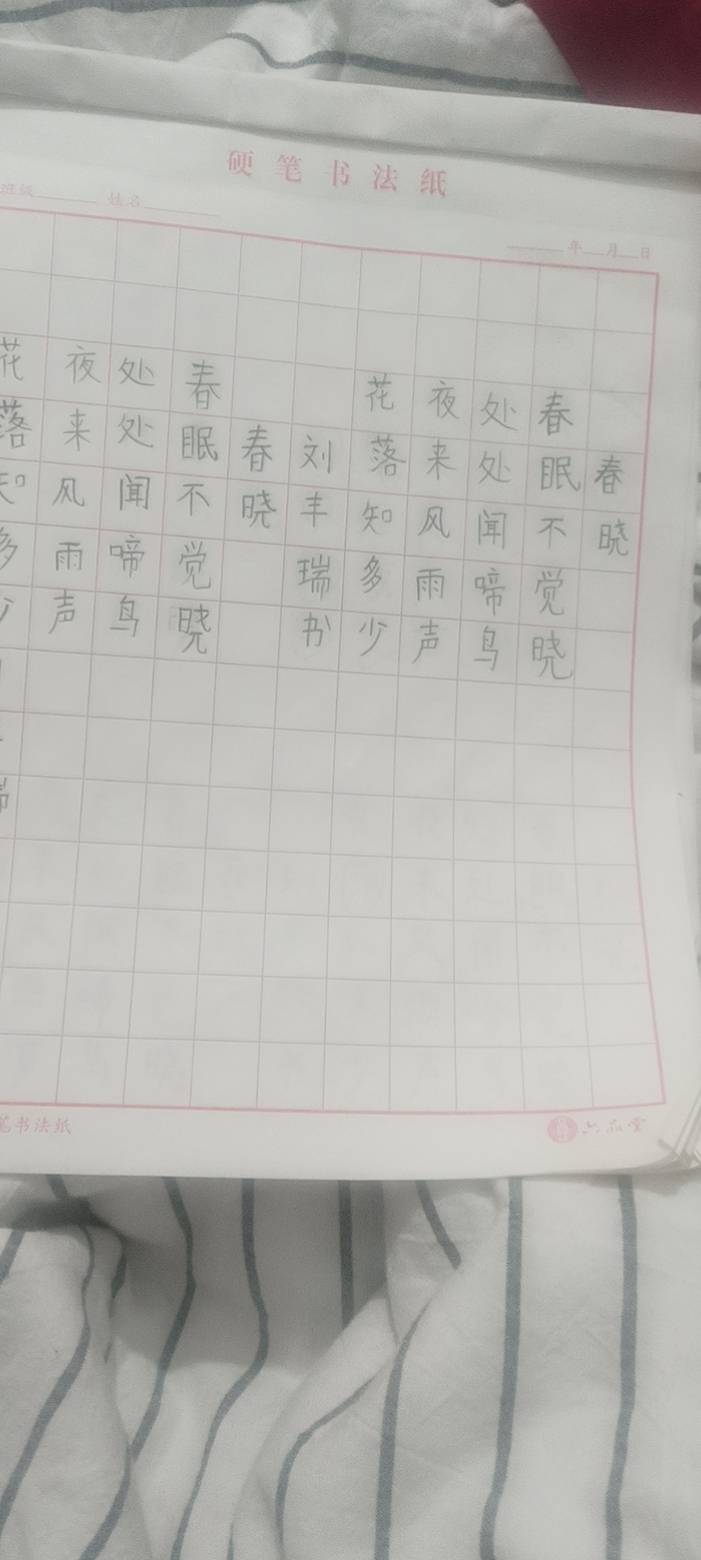 硬笔书法纸
班级 姓名
年 月 日
春晓
春眠不觉晓
处处闻啼鸟
夜来风雨声
花落知多少
刘丰瑞书
春晓
春眠不觉晓
处处闻啼鸟
夜来风雨声
花落知多少
笔书法纸
六品堂